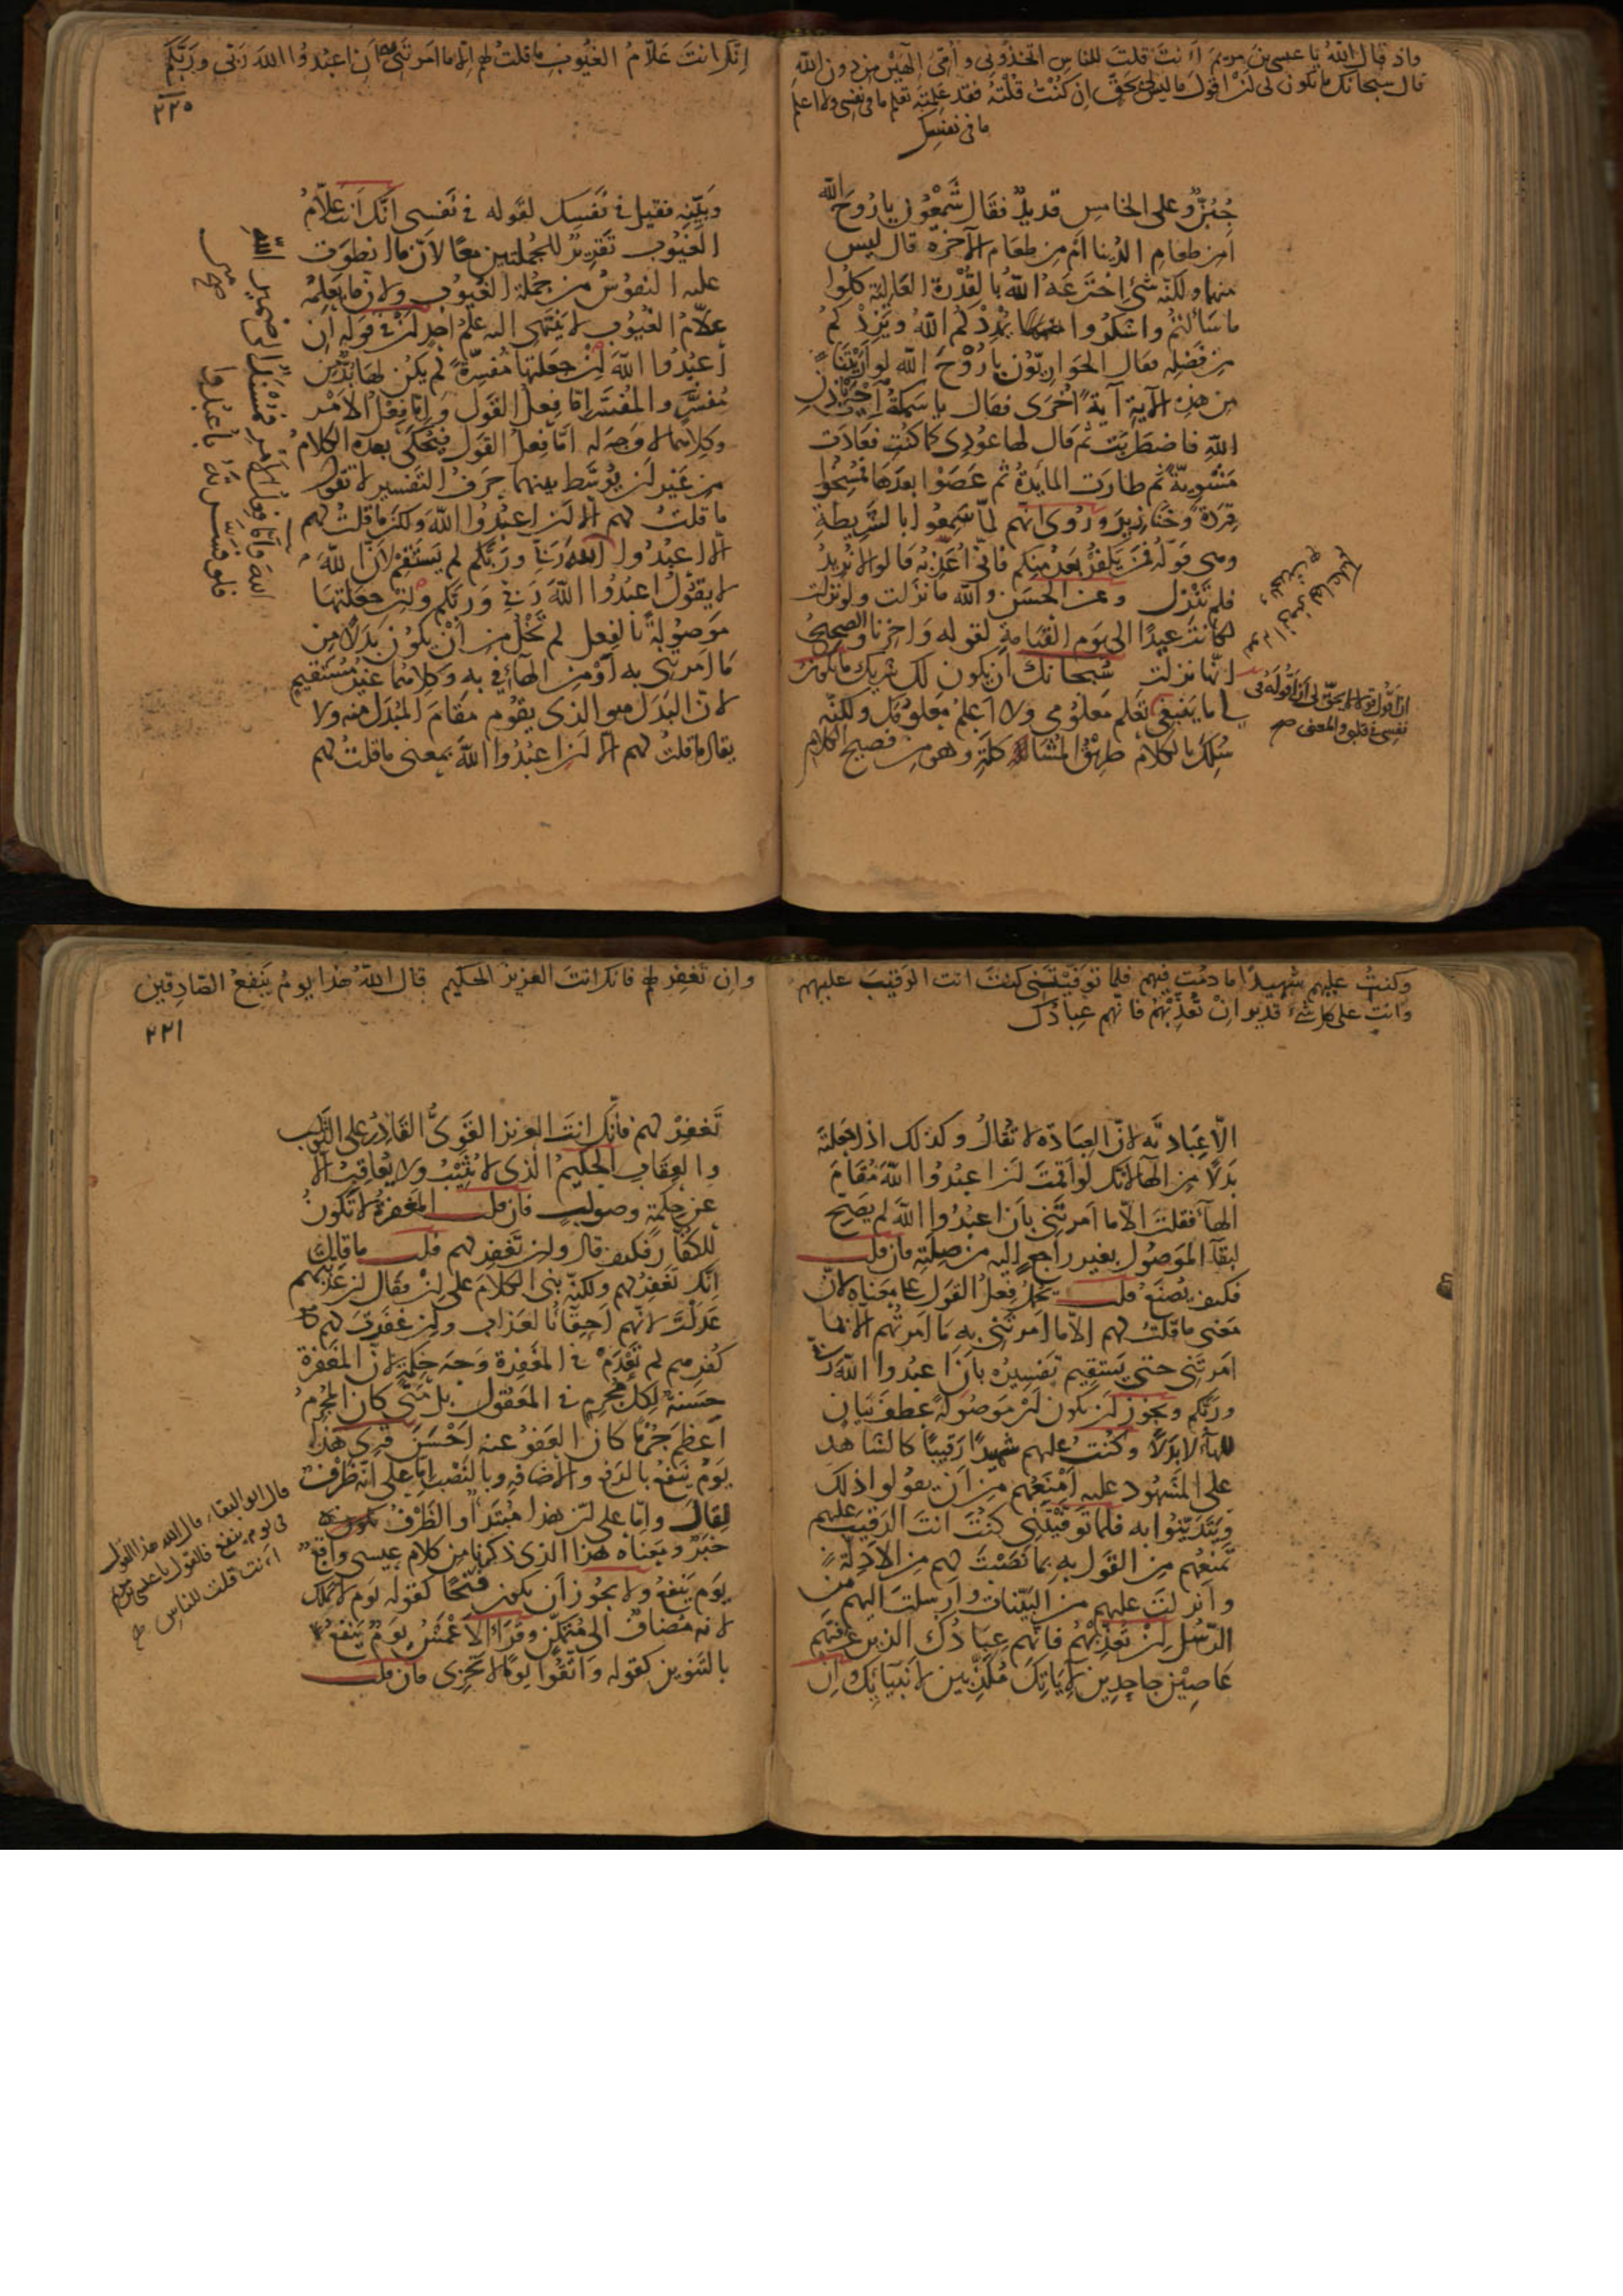 واذ قال الله يا عيسى بن مريم اانت قلت للناس اتخذوني وامي الهين من دون الله
قال سبحانك ما يكون لى لن اقول ما ليس لى بحق ان كنت قلته فقد علمته تعلم ما فى نفسى ولا اعلم
ما فى نفسك
جُبُنٌ وعلى الخامس قديدٌ فقال شَمْعُون يا رُوحَ الله
اَمِن طعام الدُّنيا اَمْ من طعام الآخرة قال ليس
منهما ولكنه شئ اخترعه الله بالقُدْرة العالية كلوا
ما سَاَلتُم واشكروا يُمْدِدْكم الله ويَزِدْكم
من فضله فقال الحواريّون يا رُوْحَ الله لو اَرَيْتَنا
من هذه الآية آيةً اُخْرَى فقال يا سَمَكةُ اِحْيَىْ باذن
الله فاضطربَت ثم قال لها عُودِى كما كُنتِ فعادَت
مَشْوِيّةً ثم طارت المايدة ثم عَصَوْا بعدَها فمُسِخُوا
قِرَدَةً وخنازيرَ ورُوِىَ انهم لمّا سَمِعُوا بالشَّرِيطةِ
وهى قوله فمَن يَكْفُرْ بَعْدُ منكم فانّى اُعَذِّبُه قالوا لا نُرِيدُ
فلم تَنْزِل وعن الحَسَن والله ما نزلت ولو نزلت
لكانَت عِيدًا الى يوم القيامة لقوله وآخِرنا والصحيحُ
انها نزلت سُبحانَكَ اَن يكون لك شريك ما يكون
لى ما يَنبغى تَعلم مَعلُومى ولا اَعلَمُ مَعلُومَك ولكنّه
سُلِكَ بالكلام طريق المُشاكَلَةِ وهو من فصيح الكلام
ان اقول قولا لا يحق لى ان اقوله فى
نفسى فى قلبى والمعنى صح
انك انت علّام الغيوب ما قلت لهم الا ما امرتنى به ان اعبدوا الله ربى وربكم
٢٢٠
وبَيِّنِه فقيل فى نفسك لقوله فى نفسى انك انت علّامُ
الغيوب تقرير للجملتين معًا لانّ ما انطوت
عليه النفوسُ من جملة الغيوب ولانّ ما يعلمه
علّامُ الغيوب لا يَنتهى اليه عِلمُ احدٍ اَنْ فى قوله اَن
اعبدوا الله اِنْ جعلتها مُفسِّرةً لم يكن لها بُدٌّ من
مُفسَّرٍ والمُفسَّر اِمّا فعلُ القول وامّا فعلُ الامر
وكلاهما لا وَجهَ له اَمّا فعلُ القول فيُحْكَى بعده الكلام
من غير اَن يُوَسَّط بينهما حرفُ التفسير لا تقول
ما قلتُ لهم الّا اَن اعبدوا الله ولكن ما قلتُ لهم
الّا اعبدوا الله
ربّى وربّكم لم يستقم لانّ الله
لا يقول اعبدوا الله ربّى وربّكم واِن جعلتها
موصولةً بالفعل لم تَخْلُ من اَنْ يكون بدلًا من
ما امرتنى به اَوْ من الهاء فى به وكلاهما غيرُ مستقيم
لانّ البدل هو الذى يقوم مقام المُبدَل منه ولا
يقال ما قلتُ لهم الّا اَن اعبدوا الله بمعنى ما قلتُ لهم
الله وامّا فعل الامر فمسند الى ضمير الله
فلو فسرته باعبدوا
صح
وكنت عليهم شهيدًا ما دمت فيهم فلما توفيتنى كنت انت الرقيب عليهم
وانت على كل شئ قدير ان تعذبهم فانهم عبادك
الّا عبادتَه لانّ العبادة لا تُقالُ وكذلك اذا جعلته
بدلًا من الهاء لانك لو اَقمتَ اَن اعبدوا الله مُقامَ
الهاء فقلت الّا ما امرتنى بان اعبدوا الله لم يَصِحّ
لبقاء الموصول بغير راجعٍ اليه من صلته فان قلت
فكيف يُصنَع قلت يُحمل فعلُ القول على معناه لانّ
معنى ما قلتُ لهم الّا ما امرتنى به ما امرتُهم الّا بما
امرتنى حتى يَستقيم تفسيرُه بان اعبدوا الله ربّى
وربّكم ويجوز اَن يكون اَنْ موصولةً عطف بيان
للهاء لا بدلًا وكُنتُ عليهم شهيدًا رقيبًا كالشاهد
على المشهود عليه اَمنعُهم مِن اَن يقولوا ذلك
ويَتديَّنوا به فلما توفيتنى كنتَ انت الرقيب عليهم
تمنعُهم من القول به بما نصبتَ لهم من الادلة
وانزلتَ عليهم من البيّنات وارسلتَ اليهم من
الرُّسل اِنْ تُعذّبْهُم فانّهم عبادُك الذين عرفتَهم
عاصِين جاحدين لآياتك مُكذِّبين لانبيائك واِن
وان تغفر لهم فانك انت العزيز الحكيم قال الله هذا يوم ينفع الصادقين
٢٢١
تَغفِرْ لهم فانك انت العزيز القوىُّ القادِرُ على الثواب
والعقاب الحكيمُ الذى لا يُثيبُ ولا يُعاقِبُ الّا
عن حكمةٍ وصوابٍ فان قلت المغفرةُ لا تكونُ
للكفّار فكيف قال وان تغفر لهم قلت ما قال
انك تغفِرُ لهم ولكنّه بنى الكلام على اِنْ فقال ان عذّبتهم
عَدَلْتَ لانّهم اَحِقّاء بالعذاب وان غفرتَ لهم مع
كُفرهم لم تَعْدَمْ فى المغفرة وجه حكمةٍ لانّ المغفرة
حَسَنةٌ لكلّ مُجرمٍ فى المعقول بل متى كان المجرمُ
اَعظمَ جُرْمًا كان العفوُ عنه اَحْسَنَ قُرِئَ هذا
يومُ ينفعُ بالرفع والاضافة وبالنصب اِمّا على انّه ظرفٌ
لقال وامّا على انّ هذا مبتدأ والظرفُ
خبرٌ ومعناه هذا الذى ذكرنا من كلام عيسى واقعٌ
يومَ ينفعُ ولا يجوز اَن يكون فتحًا كقوله يوم لا تملك
لانه مضافٌ الى مُتمكّن وقرأ الاعمش يومٌ ينفعُ
بالتنوين كقوله واتّقوا يومًا لا تجزى فان قلت
قال ابو البقاء قال الله هذا القول
فى يوم ينفع فالقول يا عيسى بن مريم
اانت قلت للناس